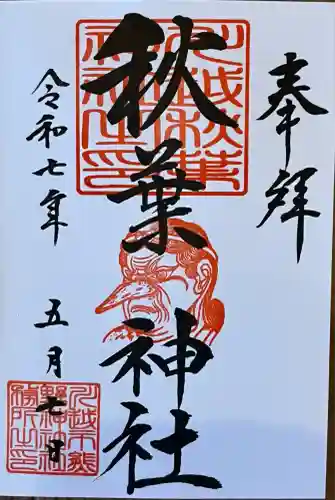 奉拝
秋葉神社
令和七年 五月七日